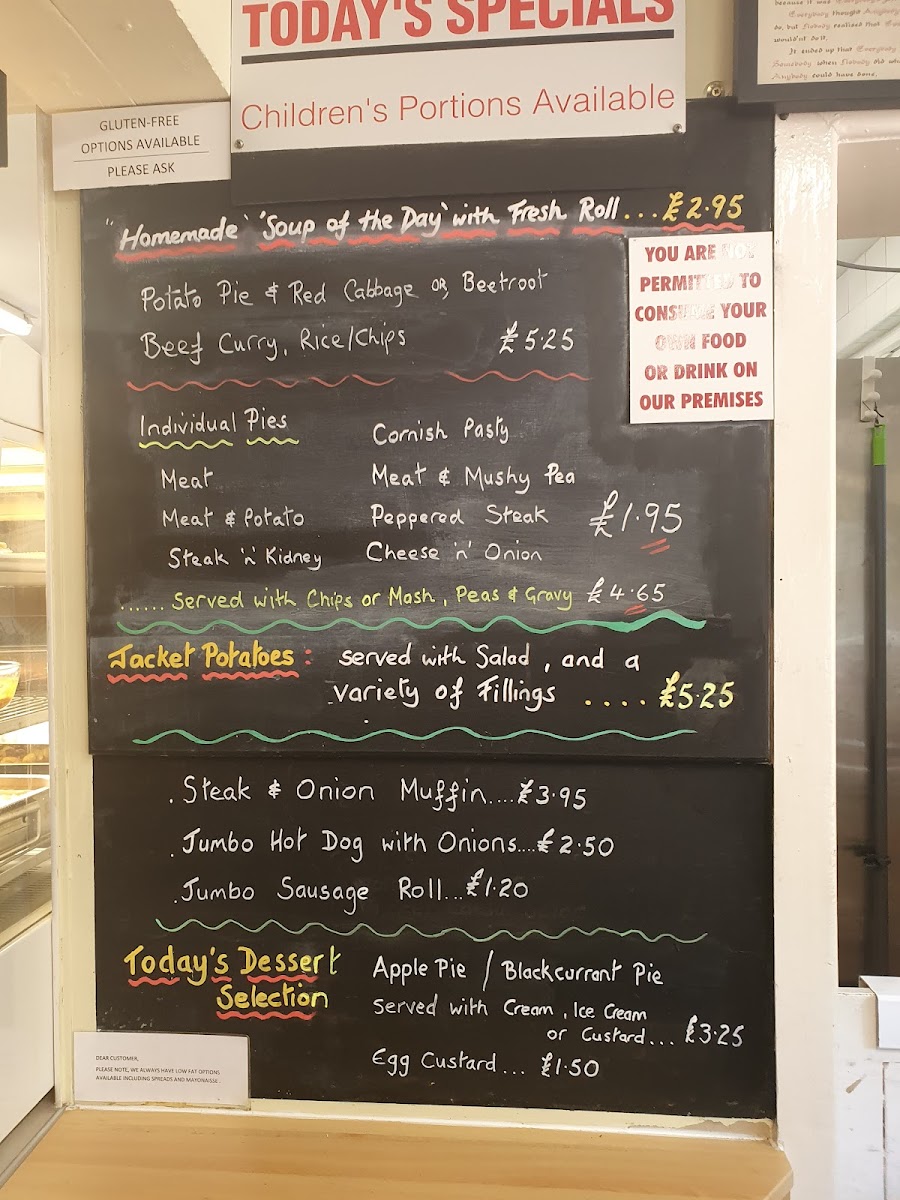 TODAY'S SPECIALS
Children's Portions Available
GLUTEN-FREE
OPTIONS AVAILABLE
PLEASE ASK
because it was
Everybody thought Anybody
do, but Nobody realised that
wouldn't do it.
It ended up that Everybody
Somebody when Nobody did
Anybody could have done.
"Homemade' 'Soup of the Day' with Fresh Roll... £2.95
Potato Pie & Red Cabbage or, Beetroot
Beef Curry, Rice/Chips £5.25
YOU ARE NOT
PERMITTED TO
CONSUME YOUR
OWN FOOD
OR DRINK ON
OUR PREMISES
Individual Pies
Cornish Pasty
Meat
Meat & Mushy Pea
Meat & Potato
Peppered Steak
£1.95
Steak 'n' Kidney
Cheese 'n' Onion
...... Served with Chips or Mash, Peas & Gravy £4.65
Jacket Potatoes: served with Salad, and a
variety of Fillings .... £5.25
. Steak & Onion Muffin.... £3.95
. Jumbo Hot Dog with Onions.... £2.50
. Jumbo Sausage Roll... £1.20
Today's Dessert
Selection
Apple Pie / Blackcurrant Pie
Served with Cream, Ice Cream
or Custard... £3.25
Egg Custard... £1.50
DEAR CUSTOMER,
PLEASE NOTE, WE ALWAYS HAVE LOW FAT OPTIONS
AVAILABLE INCLUDING SPREADS AND MAYONAISSE.